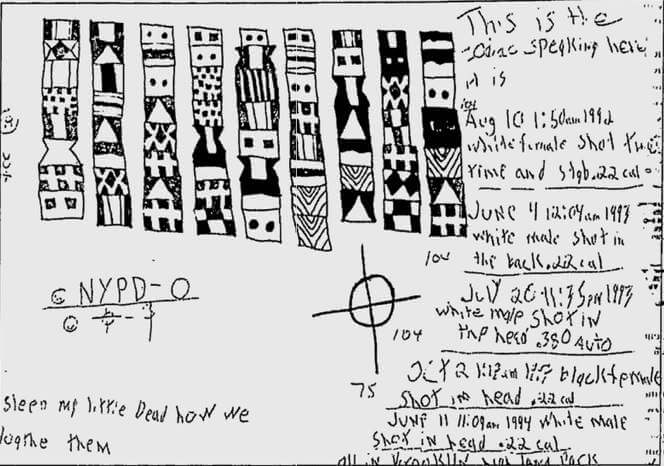 This is the
zodiac speaking here
it is
Aug 10 1:50am 1992
white female shot
time and stab .22 cal
JUNE 4 12:04am 1993
white male shot in
the back .22 cal
104
July 20 11:35pm 1993
white male shot in
the head .380 AUTO
OCT 2 black female
shot in head .22 cal
JUNE 11 11:09am 1994 white male
shot in head .22 cal
all in
NYPD-0
104
75
sleep my little Dead how we
loathe them